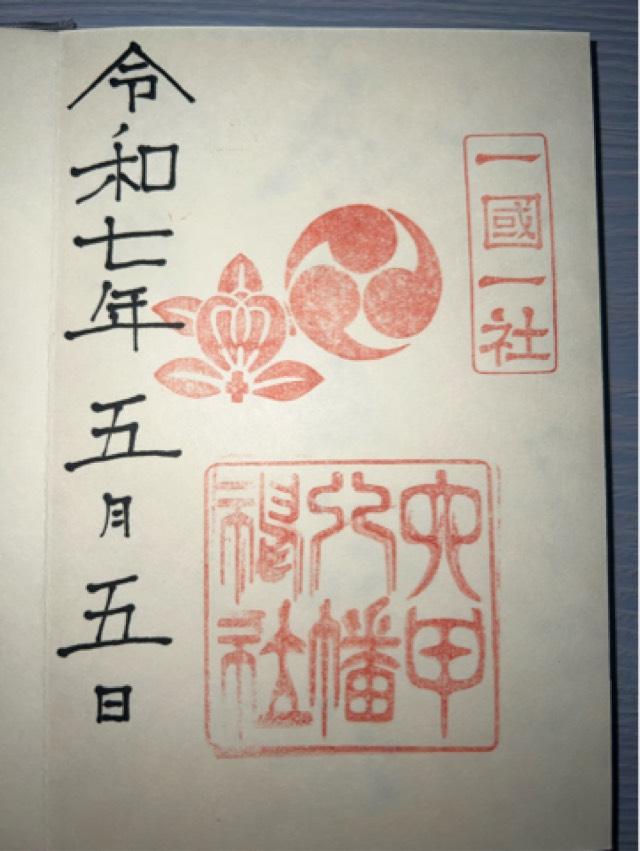 一國一社
六甲
八幡
神社
令和七年五月五日